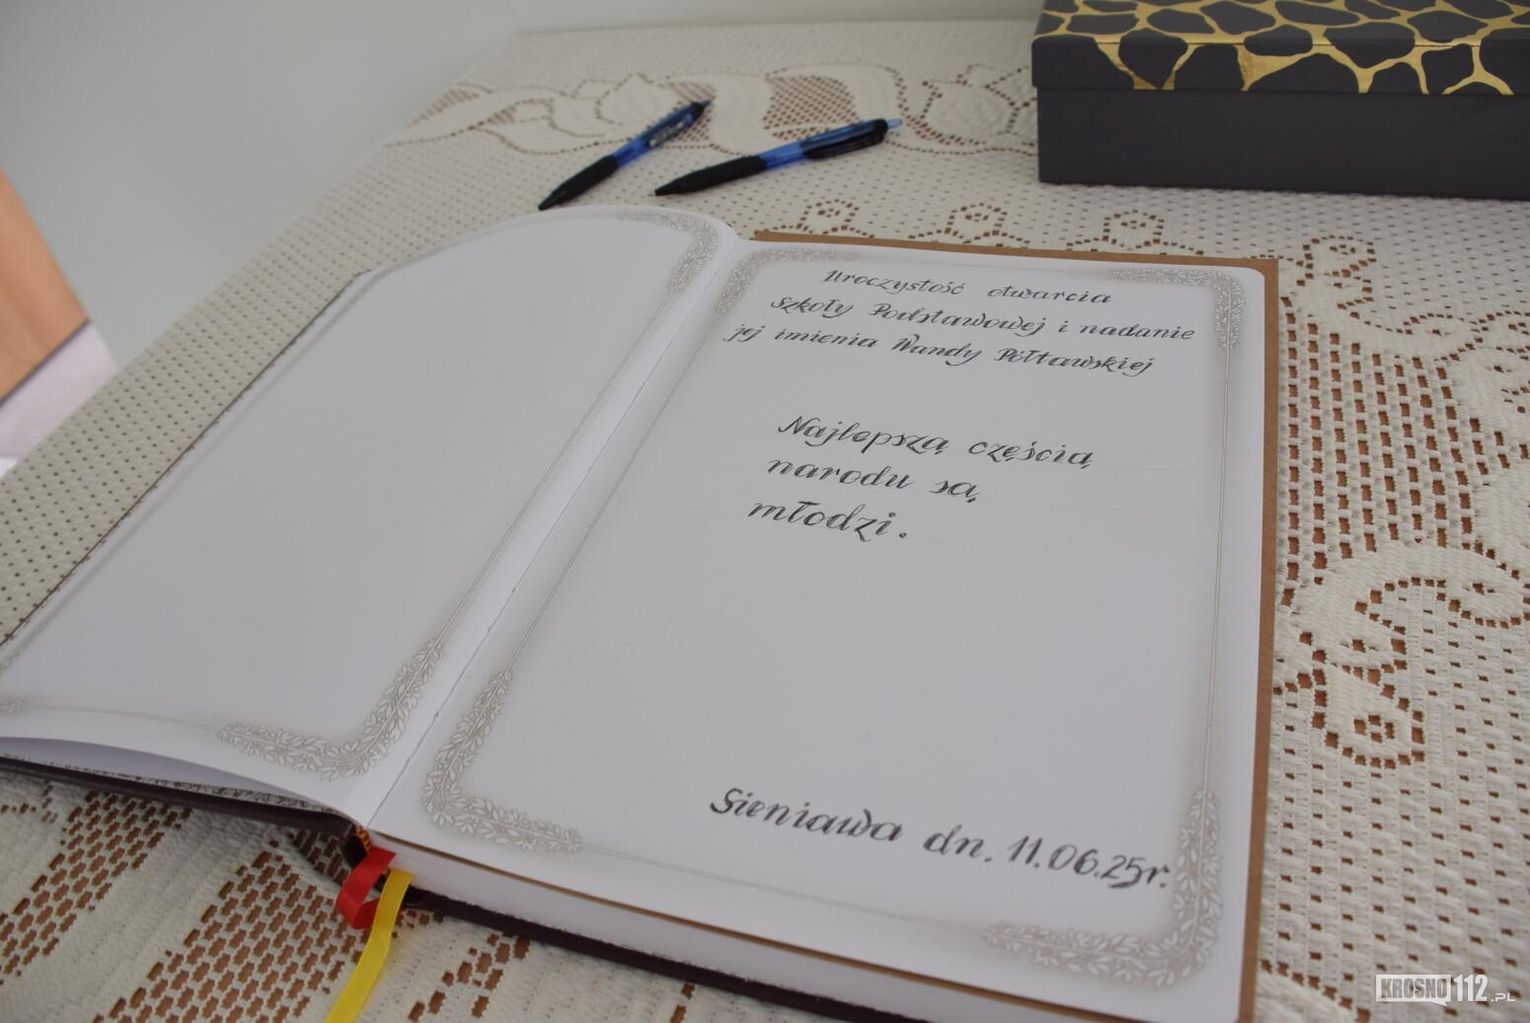 Uroczystość otwarcia
szkoły Podstawowej i nadanie
jej imienia Wandy Półtawskiej
Najlepszą częścią
narodu są
młodzi.
Sieniawa dn. 11.06.25r.
KROSNO112.PL